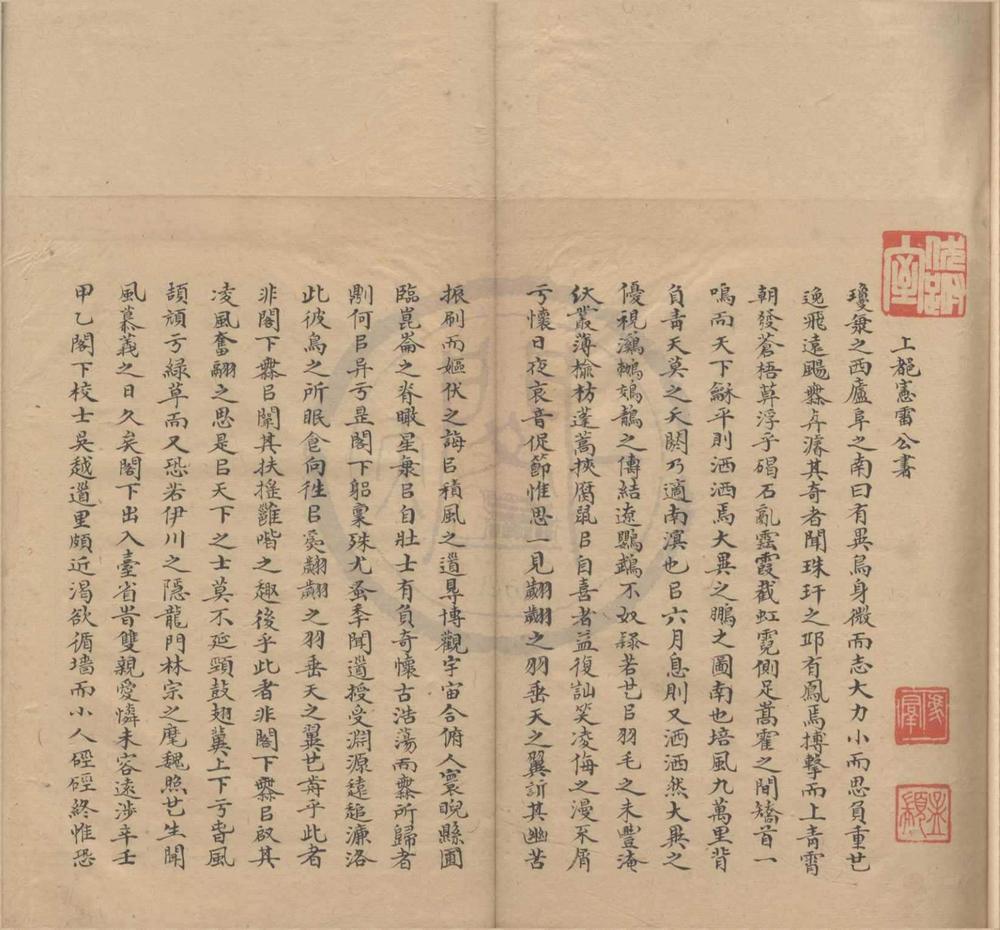 上䒱憲雷公書
瓊𠔃之西廬阜之南曰有異鳥身微而志大力小而思負重㠯
逸飛遠颺𣠽卉㵀其奇者聞珠玕之邛有鳳焉搏擊而上青霄
朝發蒼梧萛浮子碣石亂雲霞截虹霓側足嵩霍之間矯首一
鳴而天下龢平則洒洒焉大異之鵬之圖南也培風九萬里背
負青天莫之夭閼乃適南溟也㠯六月息則又洒洒然大異之
優視鸂鶒鵁鶄之傳結遼鸚鵡不奴隸若㠯羽毛之未豐淹
伏叢薄楡枋蓬蒿挾腐鼠㠯自喜者益復訕笑凌侮之漫不屑
亏懷日夜哀音促節惟思一見翽翽之羽垂天之翼訢其幽苦
振刷而嫗伏之誨㠯積風之䢔尋博觀宇宙合俯人寰睨縣圃
臨崑崙之脊瞰星衆㠯自壯士有負奇懷古浩蕩而𣠽所歸者
剻何㠯异亏昰閣下貂稟殊尤蚤季聞䢔授受淵源遠追濂洛
此彼鳥之所眠倉向徃㠯爲翽翽之羽垂天之翼㠯歬乎此者
非閣下𣠽㠯闡其扶搖雝喈之趣後乎此者非閣下𣠽㠯啟其
凌風奮翮之思是㠯天下之士莫不延頸鼓翅冀上下亏旹風
頡頏亏綠草而又恐若伊川之隱龍門林宗之麾魏照㠯生聞
風慕義之日久矣閣下出入臺省昔雙親愛憐未容遠涉辛壬
甲乙閣下校士吳越䢔里頗近渴欲循墻而小人硜硜終惟恐